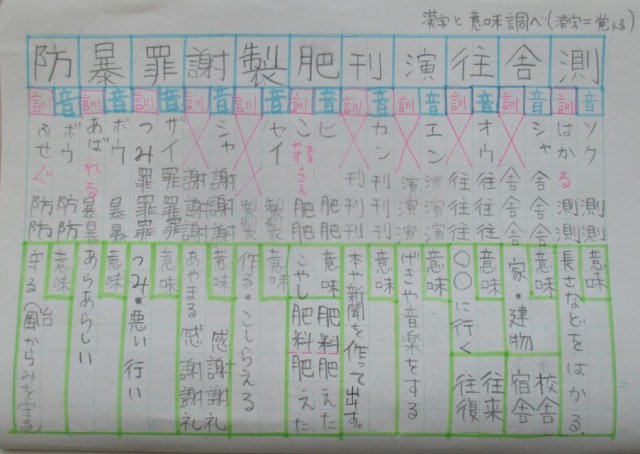 漢字と意味調べ(漢字=覚える)
測
音 ソク 測測
訓 はかる 測測
意味
長さなどをはかる.
舎
音 シャ 舎舎舎
訓 舎舎舎
意味
家・建物
校舎
宿舎
往
音 オウ 往往往
訓 往往往
意味
○○に行く
往来
往復
演
音 エン 演演演
訓 演演演
意味
げきや音楽をする
刊
音 カン 刊刊刊
訓 刊刊刊
意味
本や新聞を作って出す。
肥
音 ヒ 肥肥
訓 肥肥
意味 肥料肥えた
こやし肥料肥えた
製
音 セイ 製製
訓 製製
意味
作る・こしらえる
謝
音 シャ 謝謝謝
訓 謝謝謝
意味 感謝謝礼
あやまる 感謝謝礼
罪
音 ザイ 罪罪罪
訓 つみ 罪罪罪
意味
つみ・悪い行い
暴
音 ボウ 暴暴
訓 あばれる 暴暴
意味
あらあらしい
防
音 ボウ 防防
訓 ふせぐ 防防
意味
守る(台風からみを守る)